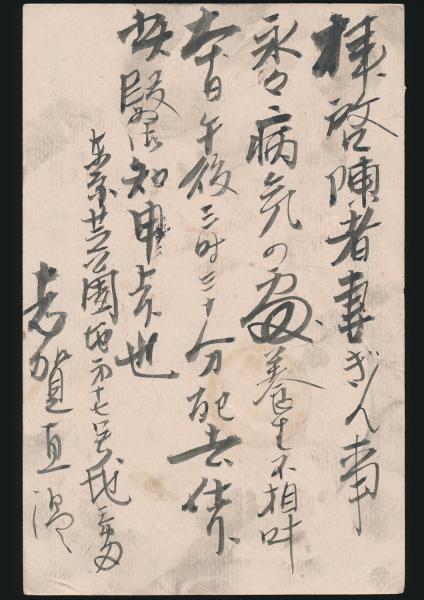 拝啓陳者妻ぎん事
永々病気の處養生不相叶
本日午後三時三十分死去候
此段御知申上候也
東京芝公園地第十七号地三番
志賀直温